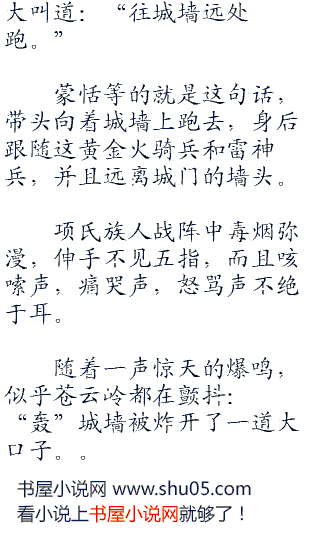 大叫道：“往城墙远处
跑。”
蒙恬等的就是这句话，
带头向着城墙上跑去，身后
跟随这黄金火骑兵和雷神
兵，并且远离城门的墙头。
项氏族人战阵中毒烟弥
漫，伸手不见五指，而且咳
嗽声，痛哭声，怒骂声不绝
于耳。
随着一声惊天的爆鸣，
似乎苍云岭都在颤抖：
“轰”城墙被炸开了一道大
口子。。
书屋小说网 www.shu05.com
看小说上书屋小说网就够了！